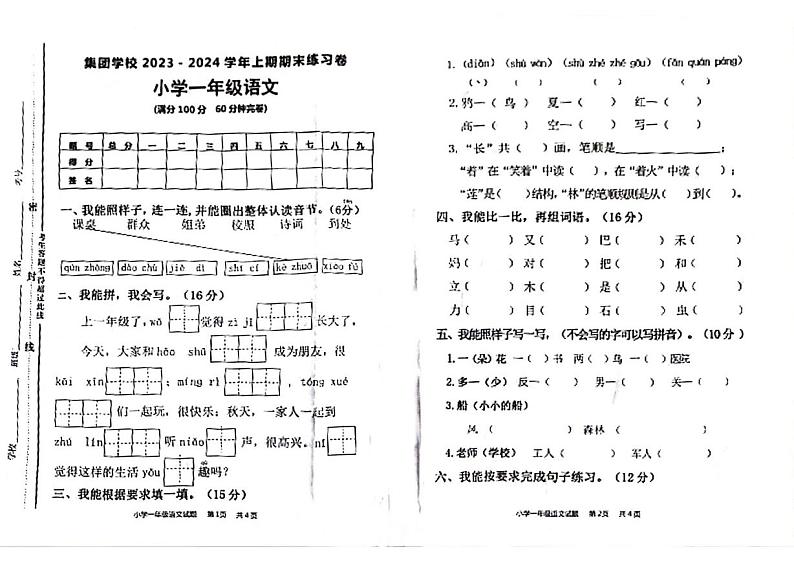 集团学校 2023 - 2024 学年上期期末练习卷
小学一年级语文
(满分 100 分 60 分钟完卷)
题号 总分 一 二 三 四 五 六 七 八 九
得分
签名
考号
姓名
班级
学校
密 封 线
考生答题不得超过此线
一、我能照样子，连一连，并能圈出整体认读音节。(6分)
课桌 群众 姐弟 校服 诗词 到处
qún zhòng dào chù jiě dì shī cí kè zhuō xiào fú
二、我能拼，我会写。(16 分)
上一年级了，wǒ 觉得 zì jǐ 长大了，
今天，大家和 hǎo shū 成为朋友，很
kāi xīn ；míng rì ，tóng xué
们一起玩，很快乐；秋天，一家人一起到
zhú lín 听 niǎo 声，很高兴。nǐ
觉得这样的生活 yǒu 趣吗？
三、我能根据要求填一填。(15 分)
小学一年级语文试题 第 1页 共 4 页
1.
(丶)( )( )( )
2. 鸦—( 鸟 ) 夏—( ) 红—( )
高—( ) 空—( ) 写—( )
3. “长”共( )画，笔顺是 ；
“着”在“笑着”中读( )，在“着火”中读( )；
“莲”是( )结构，“林”的笔顺规则是从( )到( )。
四、我能比一比，再组词语。(16 分)
马( ) 又( ) 巴( ) 禾( )
妈( ) 对( ) 把( ) 和( )
立( ) 木( ) 是( ) 从( )
力( ) 目( ) 石( ) 虫( )
五、我能照样子写一写，(不会写的字可以写拼音)。(10 分)
1. 一(朵)花 一( )书 两( )鸟 一( )医院
2. 多—(少) 反—( ) 男—( ) 关—( )
3. 船(小小的船)
风( ) 森林( )
4. 老师(学校) 工人( ) 军人( )
六、我能按要求完成句子练习。(12 分)
小学一年级语文试题 第 2页 共 4 页